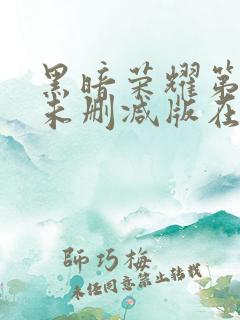 黑暗荣耀第
未删减版在
師巧梅
未经同意禁止转载